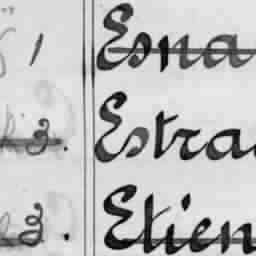 1 Esna
3. Estra
3. Etien